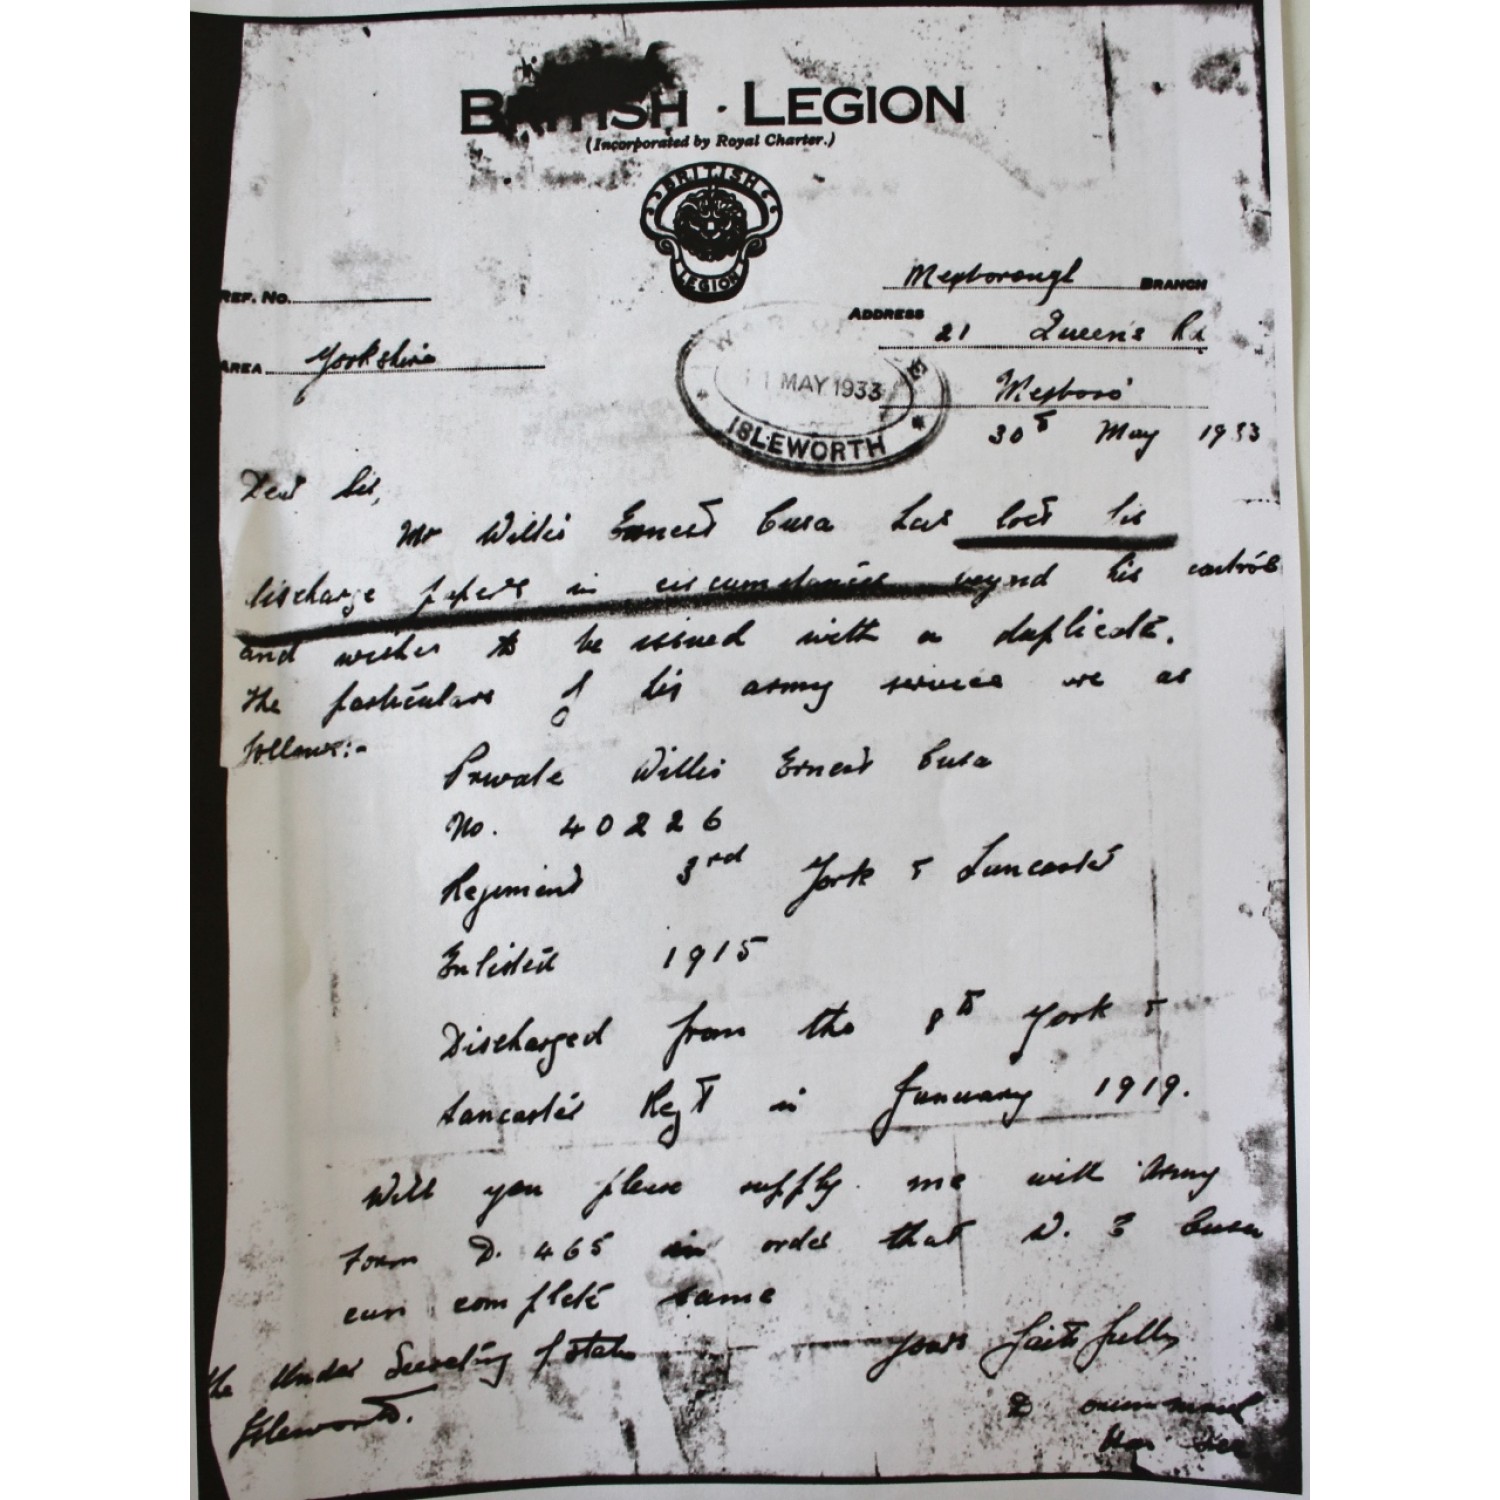 BRITISH · LEGION
(Incorporated by Royal Charter.)
BRITISH
LEGION
REF. No.
Mexborough BRANCH
ADDRESS
21 Queen's Rd
AREA Yorkshire
Mexboro'
MAY 1933
ISLEWORTH
30th May 1933
Dear Sir,
Mr Willis Ernest Cusa has lost his
discharge papers in circumstances beyond his control
and wishes to be issued with a duplicate.
The particulars of his army service are as
follows:-
Private Willis Ernest Cusa
No. 40226
Regiment 3rd York & Lancaster
Enlisted 1915
Discharged from the 8th York &
Lancaster Regt in January 1919.
Will you please supply me with Army
Form D. 465 in order that W. E Cusa
can complete same
Yours faithfully
The Under Secretary of State
Isleworth.
Hon Sec